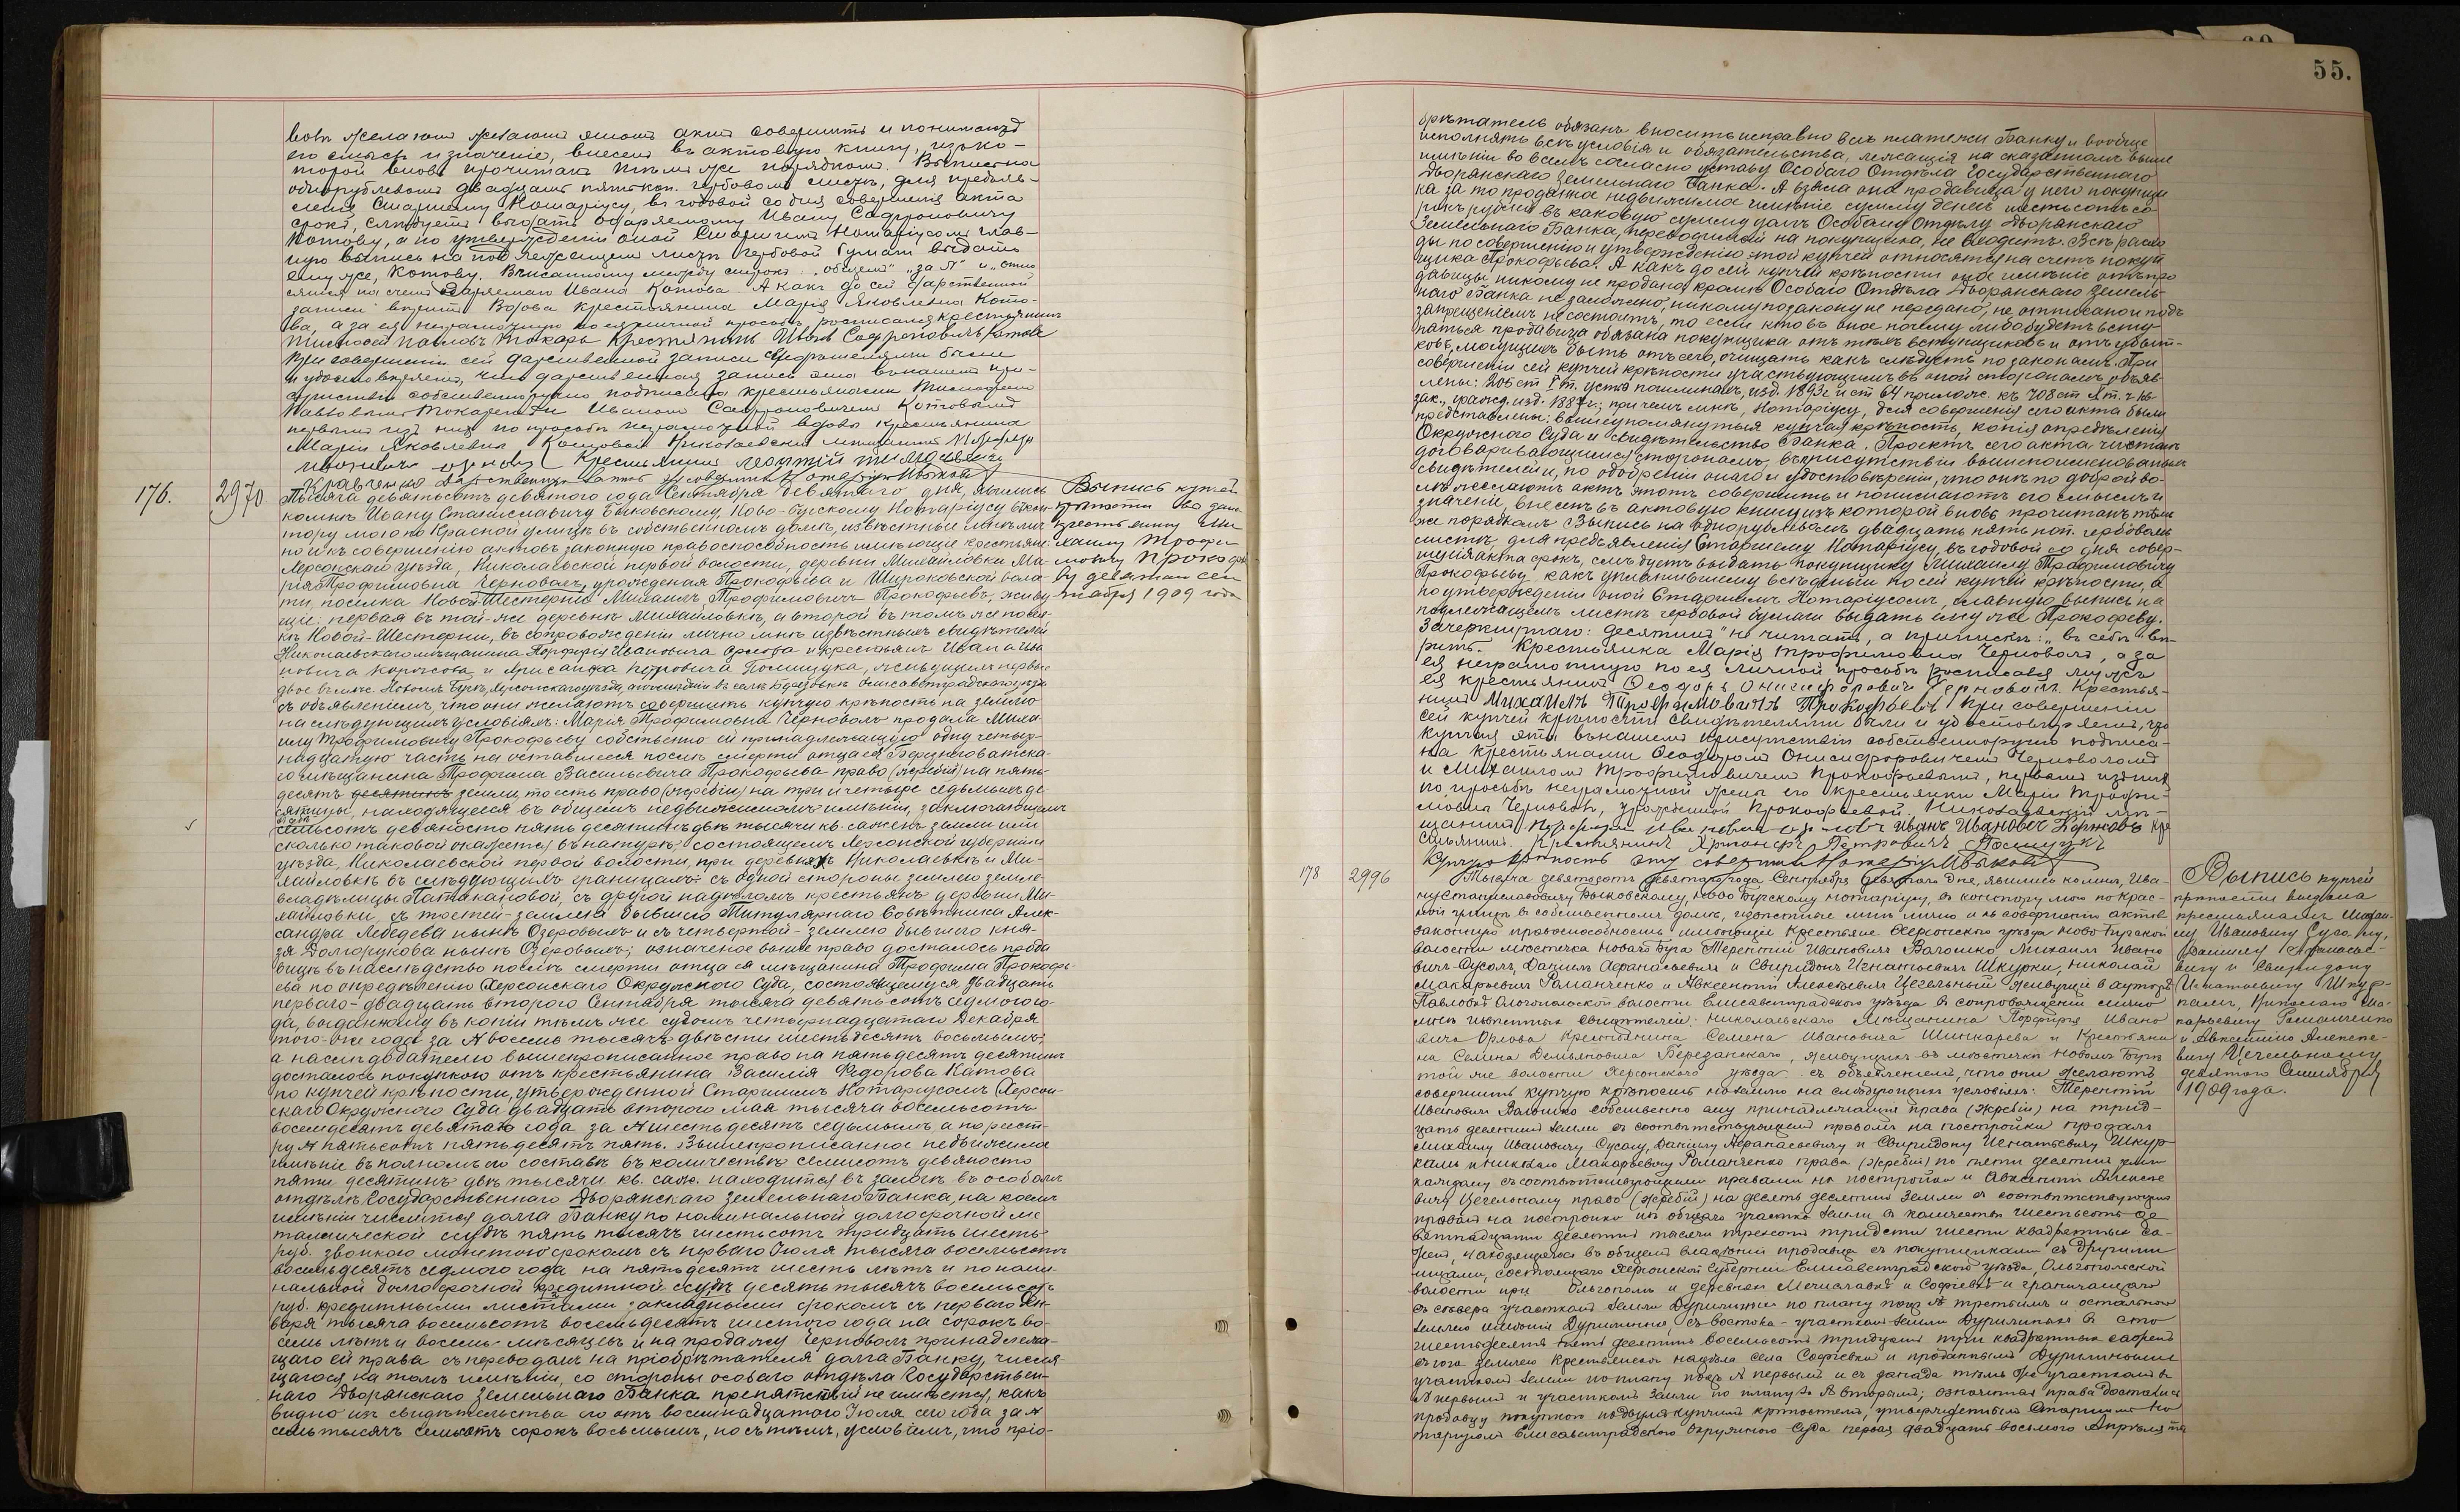 55.
желают акт совершить и понимают
его смысл и значеніе, внесен въ актовую книгу, из ко-
торой вновь прочитан тем же порядком. Выпись на
однорублевом двадцати пяти коп. гербовом листе, для предъяв-
ленія Старшему Нотаріусу, въ годовой со дня совершенія акта
срок, следует выдать одаряемому Ивану Софроновичу
Котову, а по утвержденіи оной Старшим Нотаріусом глав-
ную выпись на подлежащем листе гербовой бумаги выдать
ему же, Котову.
счет одаряемаго Ивана Котова. А какъ до сей дарственной
записи Вдова крестьянина Марія Яковлевна Кото-
ва, а за ея неграмотную по ея личной просьбе росписался крестьянин
Тимофей Павловъ Токарь Крестьянинъ Иванъ Софроновичъ Котовъ
При совершеніи сей дарственной записи свидетелями были
и удостоверяем, что дарственная запись эта в нашем при-
сутствіи собственноручно подписана крестьянами Тимофеем
Павловым Токарем и Иваном Софроновичем Котовым
первым из них по просьбе неграмотной вдовы крестьянина
Маріи Яковлевны Котовой Николаевскій мещанин Порфирий
Иванович Орлов Крестьянин
176.
2970
Тысяча девятьсотъ девятого года Сентября девятаго дня, явились
ко мне Ивану Станиславичу Быковскому, Ново-Бугскому Нотаріусу въ кон-
тору мою по Красной улице въ собственномъ доме, известные мне лич-
но и къ совершенію актовъ законную правоспособность имеющіе крестьяне:
Херсонскаго уезда, Николаевской первой волости, деревни Михайловки Ма-
рія Трофимовна Черноволъ, урожденная Прокофьева и Широковской воло-
сти, поселка Новой-Шестерни Михаилъ Трофимовичъ Прокофьевъ, живу-
щіе: первая въ той-же деревне Михайловке, а второй въ томъ же посел-
ке Новой-Шестерни, въ сопровожденіи лично мне известныхъ свидетелей
Николаевскаго мещанина Порфирія Ивановича Орлова и крестьянъ Ивана Ива-
новича Коржова и Петровича живущихъ первые
съ объявленіемъ, что они желаютъ совершить купчую крепость на землю
на следующихъ условіяхъ: Марія Трофимовна Черноволъ продала Миха-
илу Трофимовичу Прокофьеву собственно ей принадлежащую одну четыр-
надцатую часть на оставшееся после смерти отца ея
го мещанина Трофима Васильевича Прокофьева право (жребій) на пять-
десять десятинъ земли, то есть право (жребій) на три и четыре седьмыхъ де-
сятины, находящееся въ общемъ недвижимомъ именіи, заключающемъ
въ себе
семьсотъ девяносто пять десятинъ две тысячи кв. сажень земли или
сколько таковой окажется въ натуре, состоящемъ Херсонской губерніи
уезда, Николаевской первой волости, при деревняхъ Николаевке и Ми-
хайловке въ следующихъ границахъ: съ одной стороны землею земле-
владелицы съ другой наделомъ крестьянъ деревни Ми-
хайловки, съ третьей-землею бывшаго Титулярнаго Советника Алек-
сандра Лебедева ныне Озеровымъ и съ четвертой-землею бывшаго кня-
зя Долгорукова ныне Озеровымъ; означеное выше право досталось прода-
вице въ наследство после смерти отца ея мещанина Трофима Прокофь-
ева по определенію Херсонскаго Окружнаго Суда, состоявшемуся двадцать
перваго-двадцать второго Сентября тысяча девятьсотъ седьмого го-
да, выданному въ копіи темъ же судомъ четырнадцатаго Декабря
того-же года за № восемь тысячъ двести шестьдесятъ восьмымъ;
а наследодателю вышепрописанное право на пятьдесятъ десятинъ
досталось покупкою отъ крестьянина Василія Федорова Катова
по купчей крепости, утвержденной Старшимъ Нотаріусомъ Херсон-
скаго Окружнаго Суда двадцать второго мая тысяча восемьсотъ
восемьдесятъ девятаго года за № шестьдесятъ седьмымъ, а по реест-
ру № пятьсотъ пятьдесятъ пять. Вышепрописанное недвижимое
именіе въ полномъ его составе въ количестве семисотъ девяносто
пяти десятинъ две тысячи кв. саж. находится въ залоге въ особомъ
отделе Государственнаго Дворянскаго Земельнаго Банка, на коемъ
именіи числится долга Банку по номинальной долгосрочной ме-
таллической ссуде пять тысячъ шестьсотъ тридцать шесть
руб. звонкою монетою срокомъ съ перваго Іюля тысяча восемьсотъ
восемьдесятъ седьмого года на пятьдесятъ шесть летъ и по номи-
нальной долгосрочной кредитной ссуде десять тысячъ восемьсотъ
руб. кредитными листами закладными срокомъ съ перваго Ян-
варя тысяча восемьсотъ восемьдесятъ шестого года на сорокъ во-
семь летъ и восемь месяцевъ и на продажу Черноволъ принадлежа-
щаго ей права съ переводомъ на пріобретателя долга Банку, числя-
щагося на томъ именіи, со стороны особаго отдела Государствен-
наго Дворянскаго Земельнаго Банка препятствій не имеется, какъ
видно изъ свидетельства его отъ восемнадцатаго Іюля сего года за №
семь тысячъ семьсотъ сорокъ восьмымъ, но съ темъ, условіемъ, что пріо-
Выпись купчей
крепости выдана
крестьянину Ми-
хаилу Трофи-
мовичу Прокофье-
ву девятого сен-
тября 1909 года
бретатель обязанъ вносить исправно все платежи Банку и вообще
исполнять все условія и обязательства, лежащія на сказанномъ выше
именіи во всемъ согласно уставу Особаго Отдела Государственнаго
Дворянскаго Земельнаго Банка. А взяла она продавица у него покупщи-
ка за то проданное недвижимое именіе сумму денегъ шестьсотъ со-
рокъ рублей въ каковую сумму долгъ Особому Отделу Дворянскаго
Земельнаго Банка, переводимый на покупщика, не входитъ. Все расхо-
ды по совершенію и утвержденію этой купчей относятся на счетъ покуп-
щика Прокофьева. А какъ до сей купчей крепости оное именіе отъ про-
давицы никому не продано, кроме Особаго Отдела Дворянскаго Земель-
наго Банка не заложено, никому по закону не передано, не отписано и подъ
запрещеніемъ не состоитъ, то если кто въ оное почему либо будетъ всту-
паться продавица обязана покупщика отъ техъ вступщиковъ и отъ убыт-
ковъ, могущихъ быть отъ сего, очищать какъ следуетъ по законамъ. При
совершеніи сей купчей крепости участвующимъ въ оной сторонамъ объяв-
лены: 206 ст V т. устава пошлинахъ, изд. 1893 г. и ст 64 прилож. къ 708 ст X т. ч I св
зак., гражд. изд. 1887 г.; при чемъ мне, Нотаріусу, для совершенія сего акта были
представлены: вышеупомянутыя купчая крепость, копія определенія
Окружнаго Суда и свидетельство Банка. Проектъ сего акта читанъ
договаривающимся сторонамъ, въ присутствіи вышепоименованныхъ
свидетелей и, по одобреніи онаго и удостовереніи, что они по доброй во-
ле желаютъ актъ этотъ совершить и понимаютъ его смыслъ и
значеніе, внесенъ въ актовую книгу изъ которой вновь прочитанъ темъ
же порядкомъ. Выпись на однорублевомъ двадцать пять коп. гербовомъ
листе, для предъявленія Старшему Нотаріусу, въ годовой со дня совер-
шенія акта срокъ, следуетъ выдать покупщику Михаилу Трофимовичу
Прокофьеву, какъ уплатившему все деньги по сей купчей крепости, а
по утвержденіи оной Старшимъ Нотаріусомъ, главную выпись на
подлежащемъ листе гербовой бумаги выдать ему же Прокофьеву.
Зачеркнутаго: "десятинъ" не читать, а приписке: "въ себе" ве-
рить. Крестьянка Марія Трофимовна Черноволъ, а за
ея неграмотную по ея личной просьбе росписался мужъ
ея крестьянин Феодоръ Онисифоровичъ Черноволъ. Крестья-
нин Михаилъ Трофимовичъ Прокофьевъ При совершеніи
сей купчей крепости свидетелями были и удостоверяем, что
купчая эта в нашем присутствіи собственноручно подписа-
на крестьянами Феодором Онисифоровичем Черноволом
и Михаилом Трофимовичем Прокофьевым, первым из них
по просьбе неграмотной жены его крестьянки Маріи Трофи-
мовны Черновол, урожденной Прокофьевой. Николаевскій ме-
щанин Порфирий Иванович Орлов Иванъ Ивановъ Коржовъ кре
стьянин. Крестьянинъ Петровичъ
Купчую крепость эту совершил Нотаріус Быковский
178
2996
Тысяча девятьсотъ девятого года Сентября девятаго дня, явились ко мне, Ива-
ну Станиславовичу Быковскому, Ново-Бугскому нотаріусу, в контору мою по Крас-
ной улице в собственномъ доме, известные мне лично и к совершенію актов
законную правоспособность имеющіе Крестьяне Херсонскаго уезда Ново-Бугской
волости местечка Новаго Буга Терентій Ивановичъ Волошко, Михаил Ивано
вичъ Сусолъ, Данилъ Афанасьевичъ и Свиридонъ Игнатьевичъ Шкурки, Николай
Макарьевичъ Романченко и Авксентій Алексеевичъ Цегельный живущіе в хуторе
Павловке Ольгопольской волости Елисаветградскаго уезда в сопровожденіи лично
мне известных свидетелей: Николаевскаго Мещанина Порфирія Ивано
вича Орлова Крестьянина Семена Ивановича Шинкарева и Крестьяни
на Семена Демьяновича живущих въ местечке Новомъ Буге
той же волости Херсонскаго уезда с объявленіем, что они желают
совершить купчую крепость на землю на следующих условіях: Терентій
Иванович Волошко собственно ему принадлежащія права (жребіи) на трид-
цать десятин земли с соответствующим правом на постройки продал
Михаилу Ивановичу Сусолу, Данилу Афанасьевичу и Свиридону Игнатьевичу Шкур
кам и Николаю Макарьевичу Романченко права (жребіи) по пяти десятин земли
каждому с соответствующими правами на постройки и Авксентію Алексее
вичу Цегельному право (жребій) на десять десятин земли с соответствующим
правом на постройки из общаго участка земли в количестве шестьсот де
вятнадцати десятин тысячи триста тридцати шести квадратных са-
жен, находящагося въ общем владеніи продавца с покупщиками и с другими
лицами, состоящаго Херсонской Губерніи Елисаветградскаго уезда, Ольгопольской
волости при Ольгополь и деревнях и Софіевке и граничащаго
съ севера участком земли по плану под № третьим и остальною
съ востока - участком земли в сто
шестьдесят пять десятин восемьсот тридцать три квадратных сажень
с юга землею Крестьянскаго надела села Софіевки и проданным
участком земли по плану подъ № первым и с запада тем же участком
№ первым и участком земли по плану за № вторым; означенныя права достались
продавцу покупкою по двум купчим крепостям, утвержденным Старшим Но
таріусом Елисаветградскаго Окружнаго Суда первая двадцать восьмого Апреля
Выпись купчей
крепости выдана
крестьянам Михаи-
лу Ивановичу Сусолу,
Данилу Афанасье-
вичу и Свиридону
Игнатьевичу Шкур-
кам, Николаю Ма-
карьевичу Романченко
и Авксентію Алексее-
вичу Цегельному
девятого Сентября
1909 года.